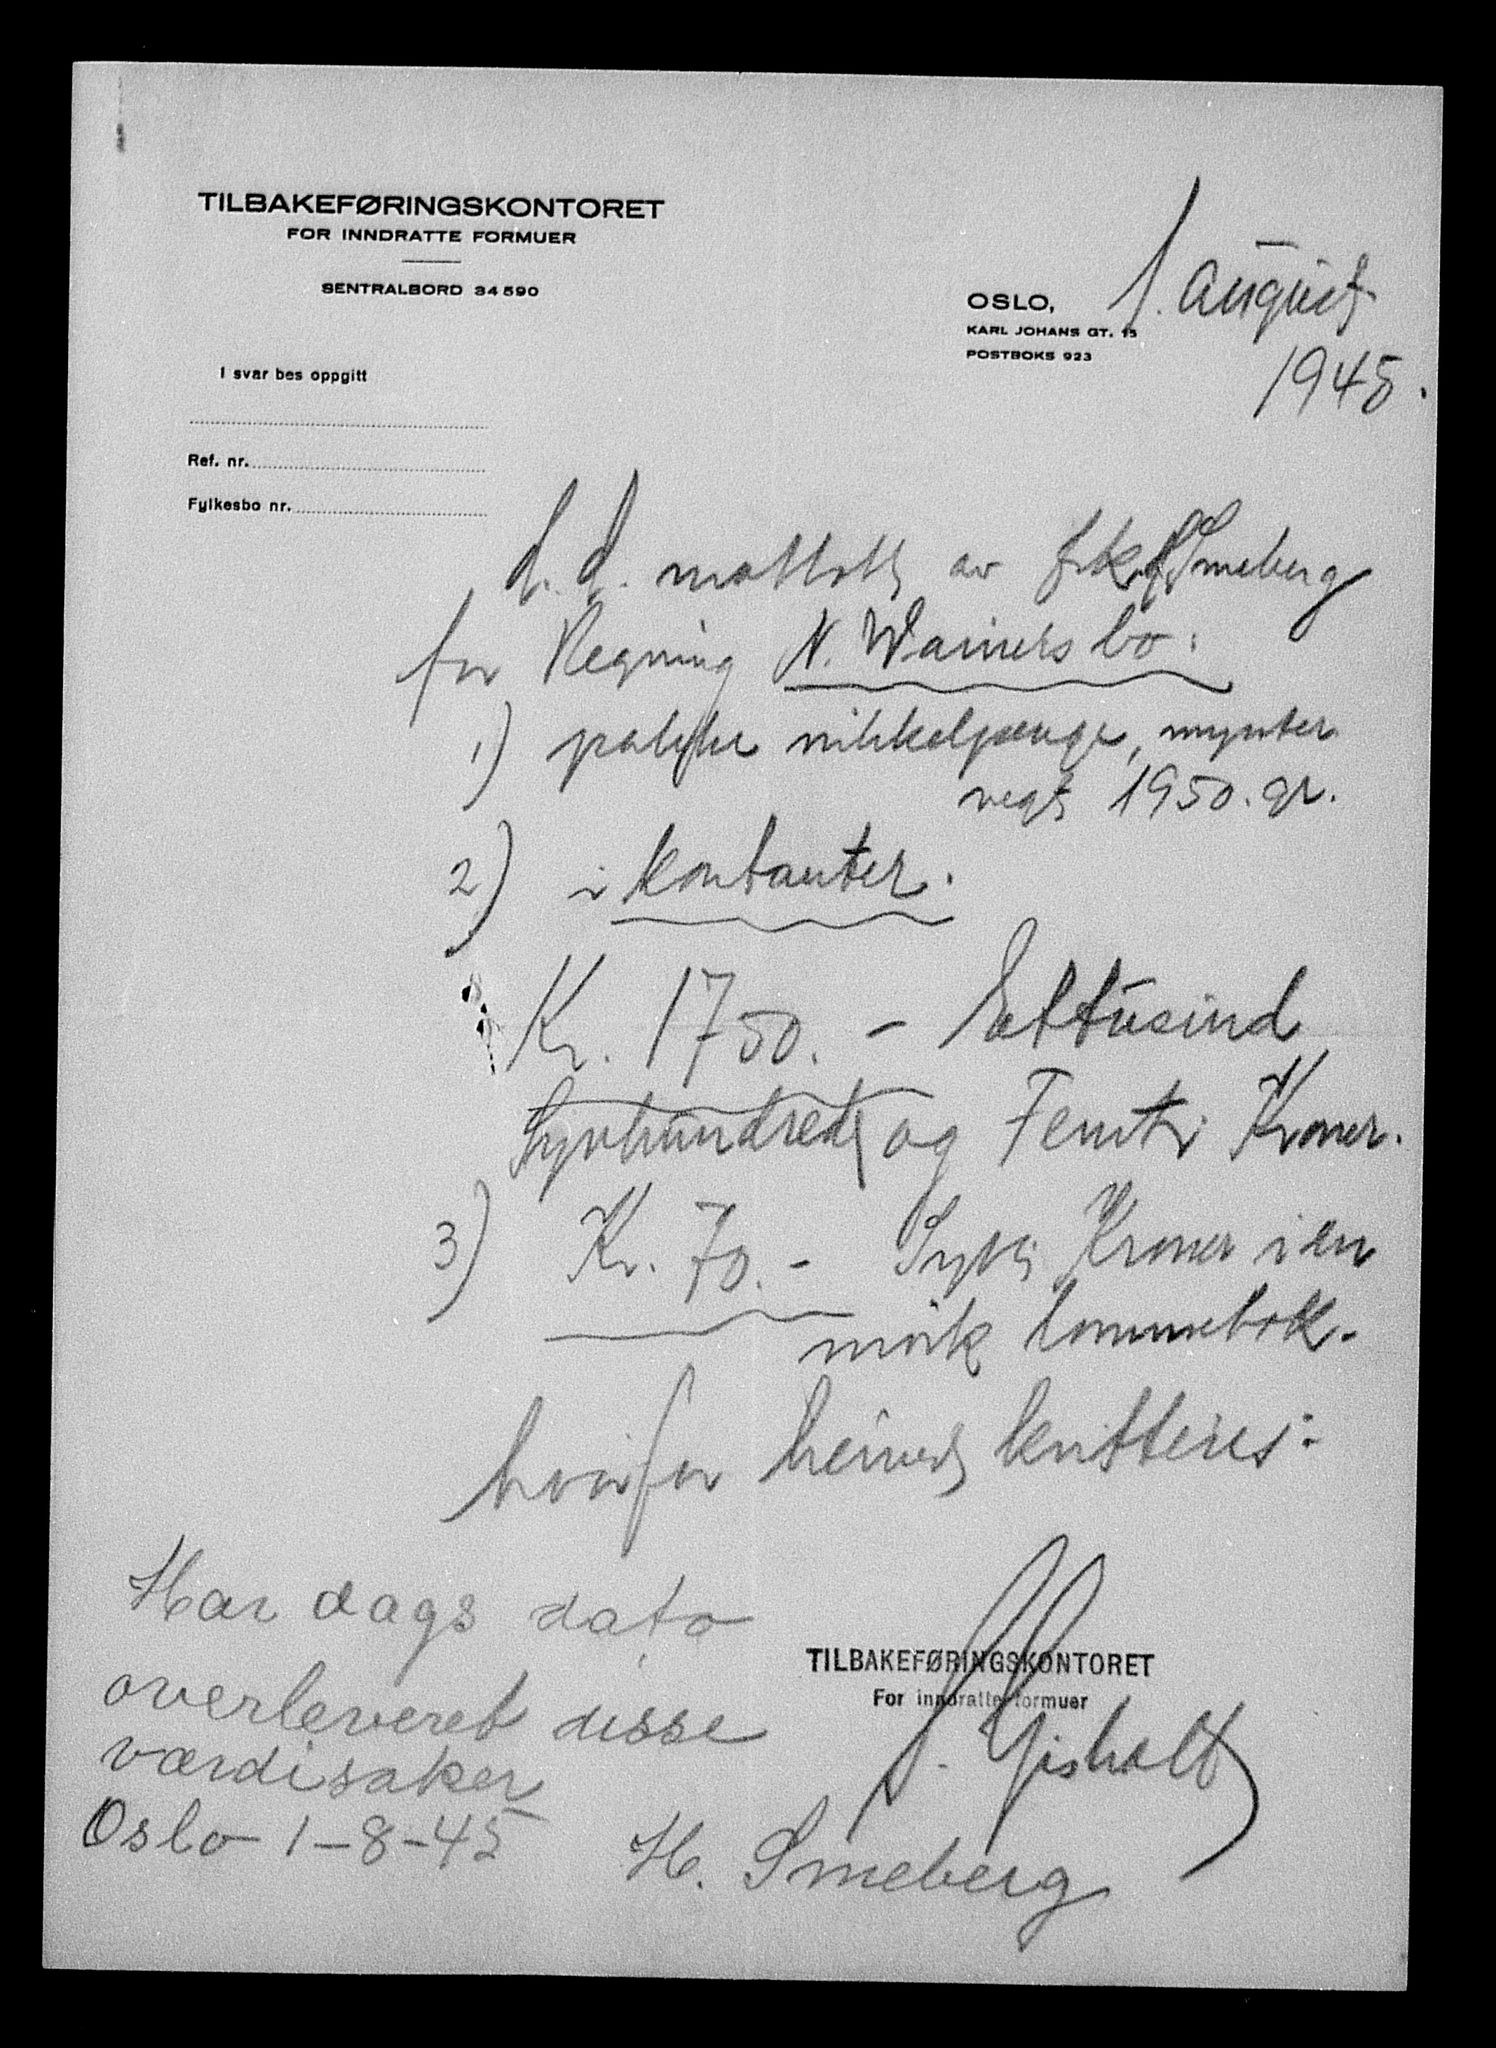 TILBAKEFØRINGSKONTORET
FOR INNDRATTE FORMUER
SENTRALBORD 34590
OSLO, 1. August
KARL JOHANS GT. 15
POSTBOKS 923
1945.
I svar bes oppgitt
Ref. nr.
Fylkesbo nr.
d. d. mottatt av frk. Smeberg
for Regning N. Wainers bo:
1) pakke nikkelpenge, mynter
vegt 1950. gr.
2) i kontanter.
Kr. 1750. - Ettusind
Syvhundrede og Femti Kroner.
3) Kr. 70. - Sytti Kroner i en
mörk lommebok.
hvorfor herved kvitteres:
TILBAKEFØRINGSKONTORET
For inndratte formuer
Gisholt
Har dags dato
overleveret disse
værdisaker
Oslo 1-8-45
H. Smeberg